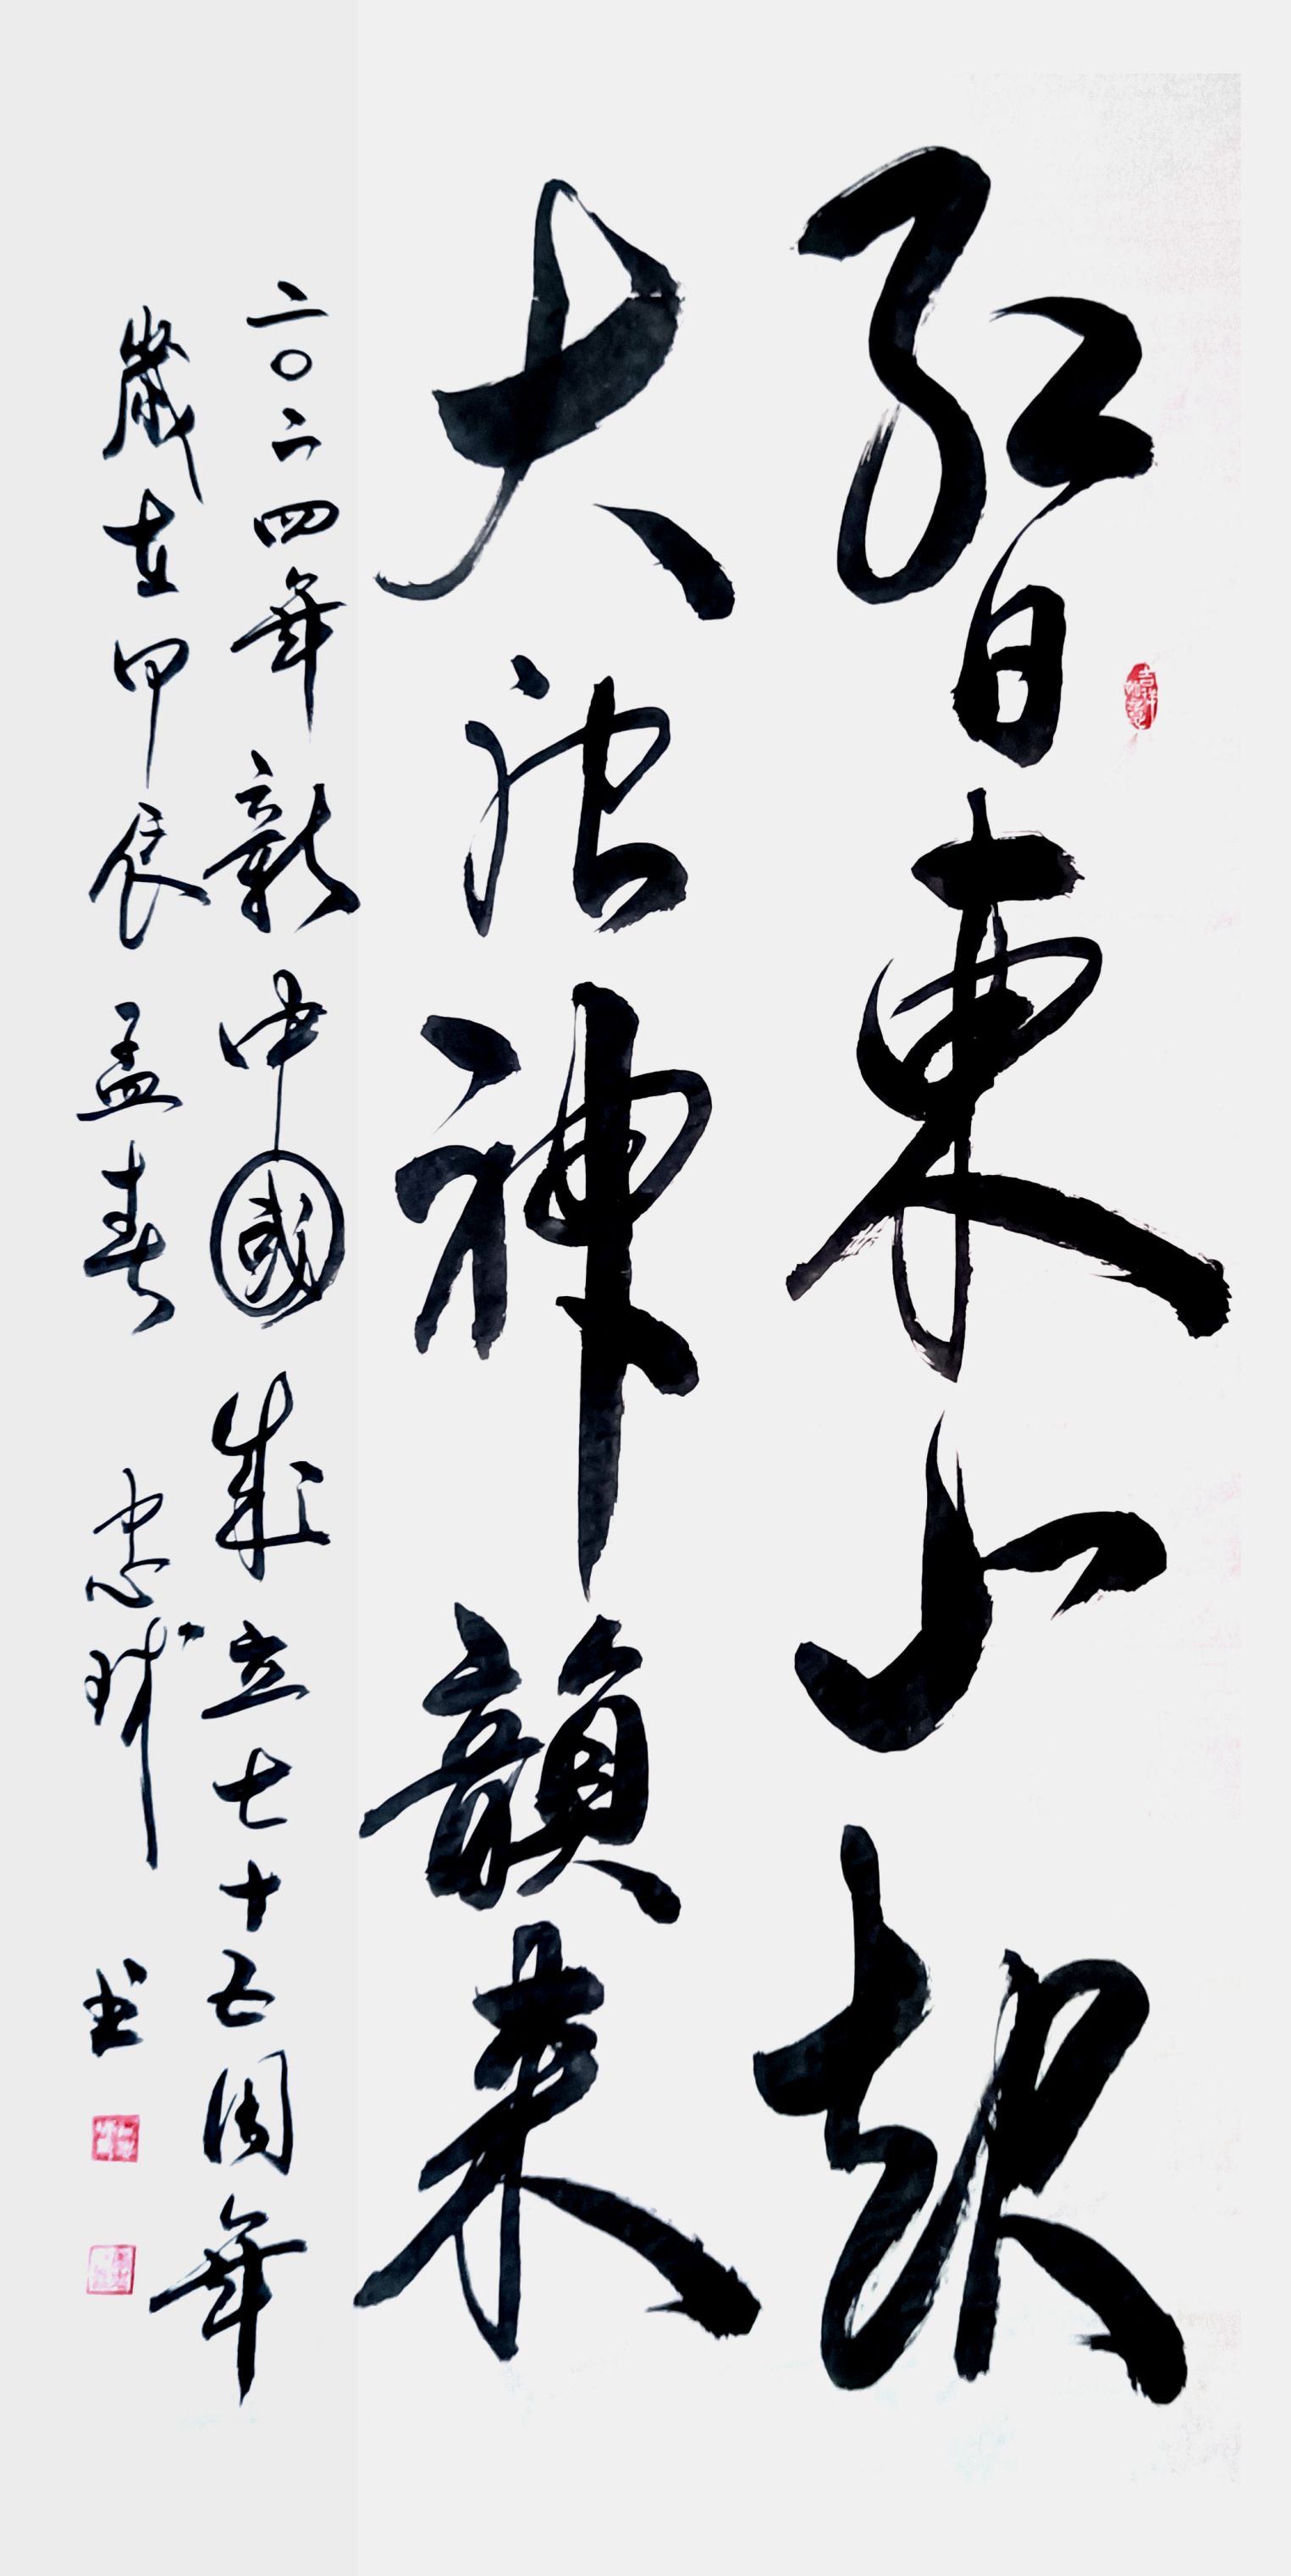 吉祥如意
紅日東山
大神韻來
二〇二四年新中國成立七十五周年
歲在甲辰孟春 忠球书